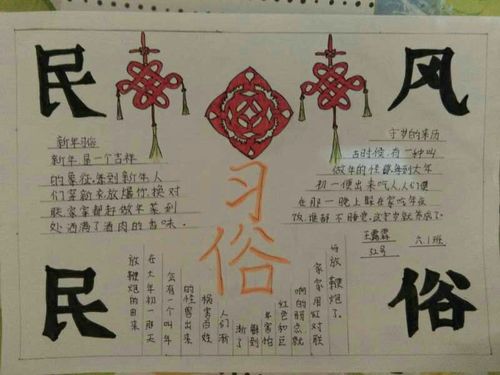 民
风
民
俗
习
俗
新年习俗
新年是一个吉祥
的象征,每到新年人
们等新衣放爆炸,换对
联,家家都赶做年菜到
处洒满了酒肉的香味。
守岁的来历
古时候,有一种叫
做年的怪兽,每到大年
初一便出来吃人,人们便
在那一晚上躲在家吃年夜
饭,
王露霖
51号
六.1班
放鞭炮的由来
在大年初一那天
会有一个叫年
的怪兽出来
祸害百姓
人们渐
渐了
年害怕
红色和巨
响的弱点就
家家用红对联
与放鞭炮了。